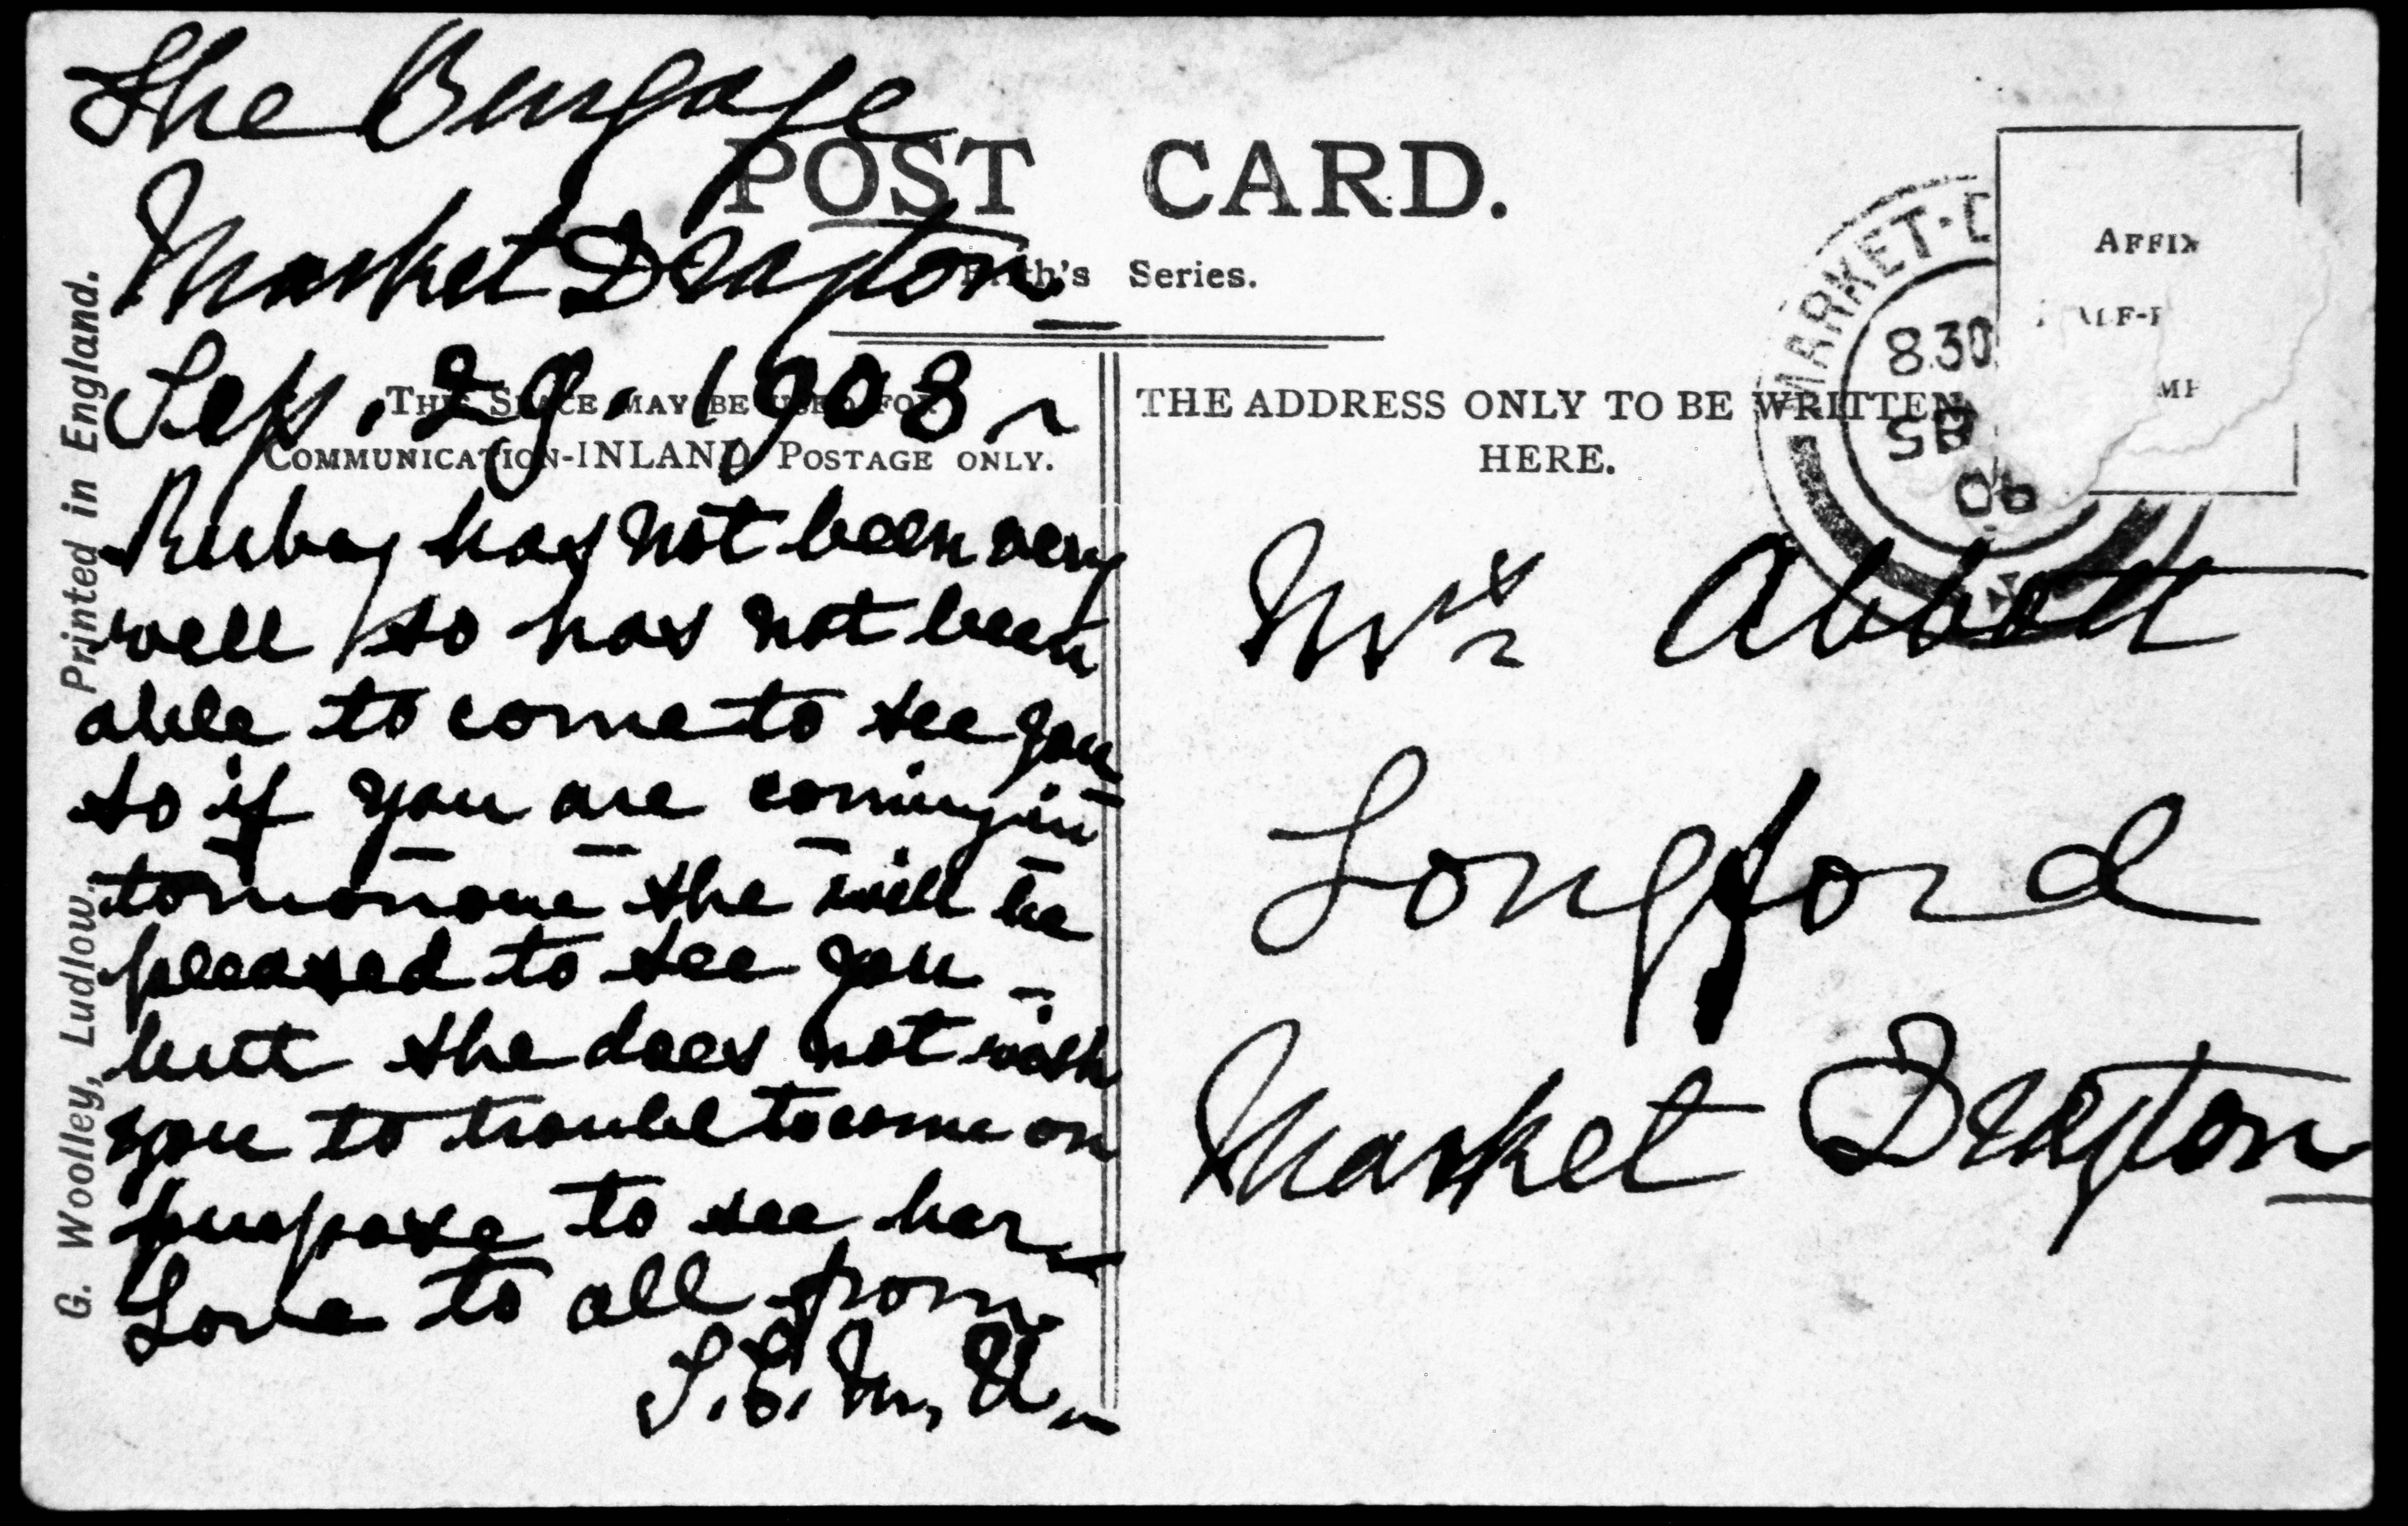 The Burgage
Market Drayton.
Sep. 29. 1908 ~
Ruby has not been very
well, so has not been
able to come to see you
so if you are coming in
tomorrow she will be
pleased to see you –
but she does not wish
you to trouble to come on
purpose to see her –
Love to all from
S.E.M.U.
POST CARD.
Frith's Series.
THIS SPACE MAY BE USED FOR
COMMUNICATION-INLAND POSTAGE ONLY.
THE ADDRESS ONLY TO BE WRITTEN
HERE.
Mrs Abbott
Longford
Market Drayton
MARKET·D
830
SP
AFFIX
ALF-P
MP
G. Woolley, Ludlow. Printed in England.